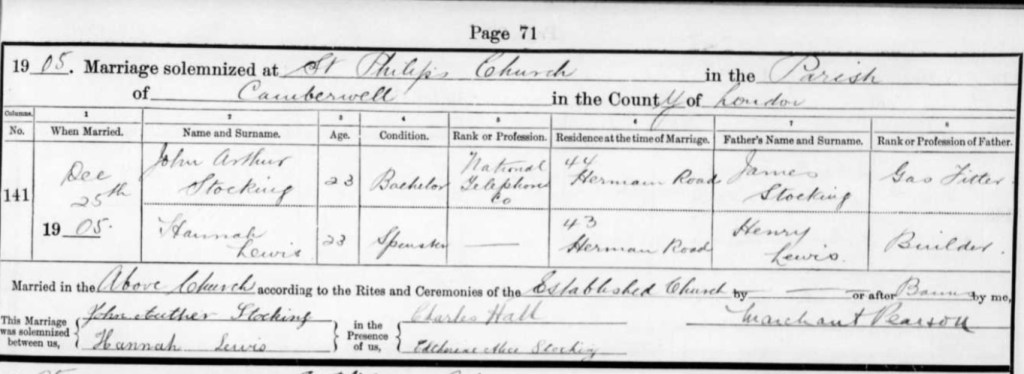 Page 71
1905. Marriage solemnized at St Philips Church in the Parish
of Camberwell in the County of London
Columns. 1 2 3 4 5 6 7 8
No. When Married. Name and Surname. Age. Condition. Rank or Profession. Residence at the time of Marriage. Father's Name and Surname. Rank or Profession of Father.
141 Dec 25th 1905. John Arthur Stocking 23 Bachelor National Telephone Co 44 Hermann Road James Stocking Gas Fitter
Hannah Lewis 23 Spinster — 43 Herman Road Henry Lewis. Builder.
Married in the Above Church according to the Rites and Ceremonies of the Established Church by — — or after Banns by me,
This Marriage was solemnized between us, John Auther Stocking Hannah Lewis in the Presence of us, Charles Hall Alice Stocking Marchant Pearson